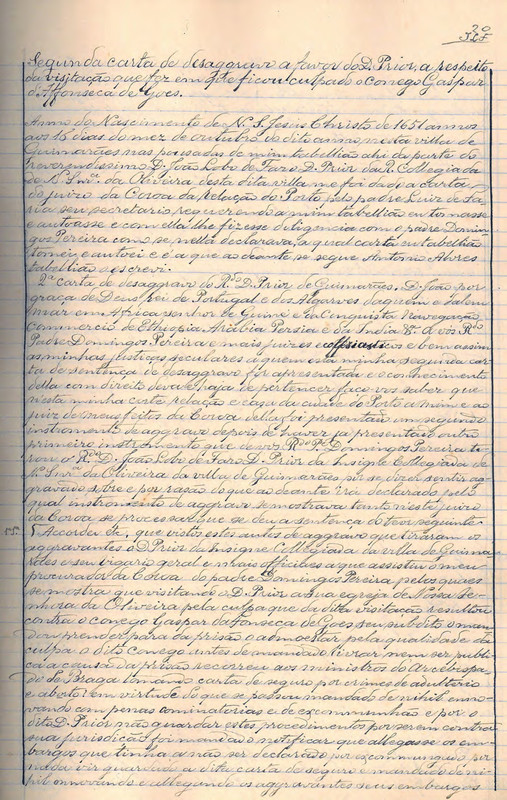 Segunda carta de desaggravo a favor do D. Prior, a respeito
da visitação que fez em q̃ lhe ficou culpado o conego Gaspar
d'Affonseca de Goes.
Anno do Nascimento de N. S. Jesus Christo de 1651 annos
aos 16 dias do mez de outubro do dito anno, nesta villa de
Guimarães nas pousadas de mim tabellião ahi da parte do
Reverendissimo D. João Lobo de Faro D. Prior da R. Collegiada
de N. Snrª da Oliveira desta dita villa me foi dada a carta
do juizo da Coroa da Relação do Porto pelo padre Luiz de Fa
ria seu secretario requerendo a mim tabellião eu tomasse
e autoasse e com ella lhe fizesse diligencia com o padre Domin
gos Pereira como se nella declarava, a qual carta eu tabellião
tomei e autoei e é a que ao deante se segue Antonio Abres
tabellião o escrevi.
2ª carta de desaggravo do Rdo D. Prior de Guimarães, D. João por
graça de Deus rei de Portugal e dos Algarves daquem e dalem
mar em Africa senhor de Guiné e da Conquista Navegação
commercio de Ethiopia Arabia Persia e da India &ª A vós Rdo
Padre Domingos Pereira e mais juizes ecclesiasticos e bem assim
as minhas justiças seculares a quem esta minha segunda car
ta de sentença de desaggravo for apresentada e o conhecimento
della com direito deva e haja de pertencer faço vos saber que
nesta minha corte relação e casa da cidade do Porto a mim e ao
juiz dos meus feitos da Coroa della foi presentado um segundo
instromento de aggravo depois de haver já presentado outro
primeiro instromento que de vós Rdo P. Domingos Pereira ti
rou o Rdo D. João Lobo de Faro D. Prior da Insigne Collegiada de
N. Snrª da Oliveira da villa de Guimarães por se dizer sentir ag
gravado sobre e por rasão do que ao deante irá declarado pelo
qual instromento de aggravo se mostrava tanto neste juizo
da Coroa se processar que se deu a sentença do teor seguinte
Accordão &, que vistos estes autos de aggravo que tiraram os
aggravantes o D. Prior da Insigne Collegiada da villa de Guima
rães e seu vigario geral e mais officiaes a que assistiu o meu
procurador da Coroa do padre Domingos Pereira pelos quaes
se mostra que visitando o D. Prior a sua egreja de Nossa Se
nhora da Oliveira pela culpa que da dita visitação resultou
contra o conego Gaspar da Fonseca de Goes seu subdito o man
dou prender para da prisão o admoestar pela qualidade da
culpa o dito conego antes de mandado livrar, nem ser publi
ca a causa da prisão recorreu aos ministros do Arcebispa
do de Braga tomando carta de seguro por crimes de adulterio
e aborto em virtude do que se passou mandado de nihil inno
vando com penas cominatorias e de excommunhão e por o
dito D. Prior não guardar estes procedimentos por serem contra
sua jurisdição foi mandado notificar que allegasse os em
bargos que tinha a não ser declarado por excommungado por
não haver guardado a dita carta de seguro e mandado de ni
hil innovando e allegando os aggravantes seus embargos